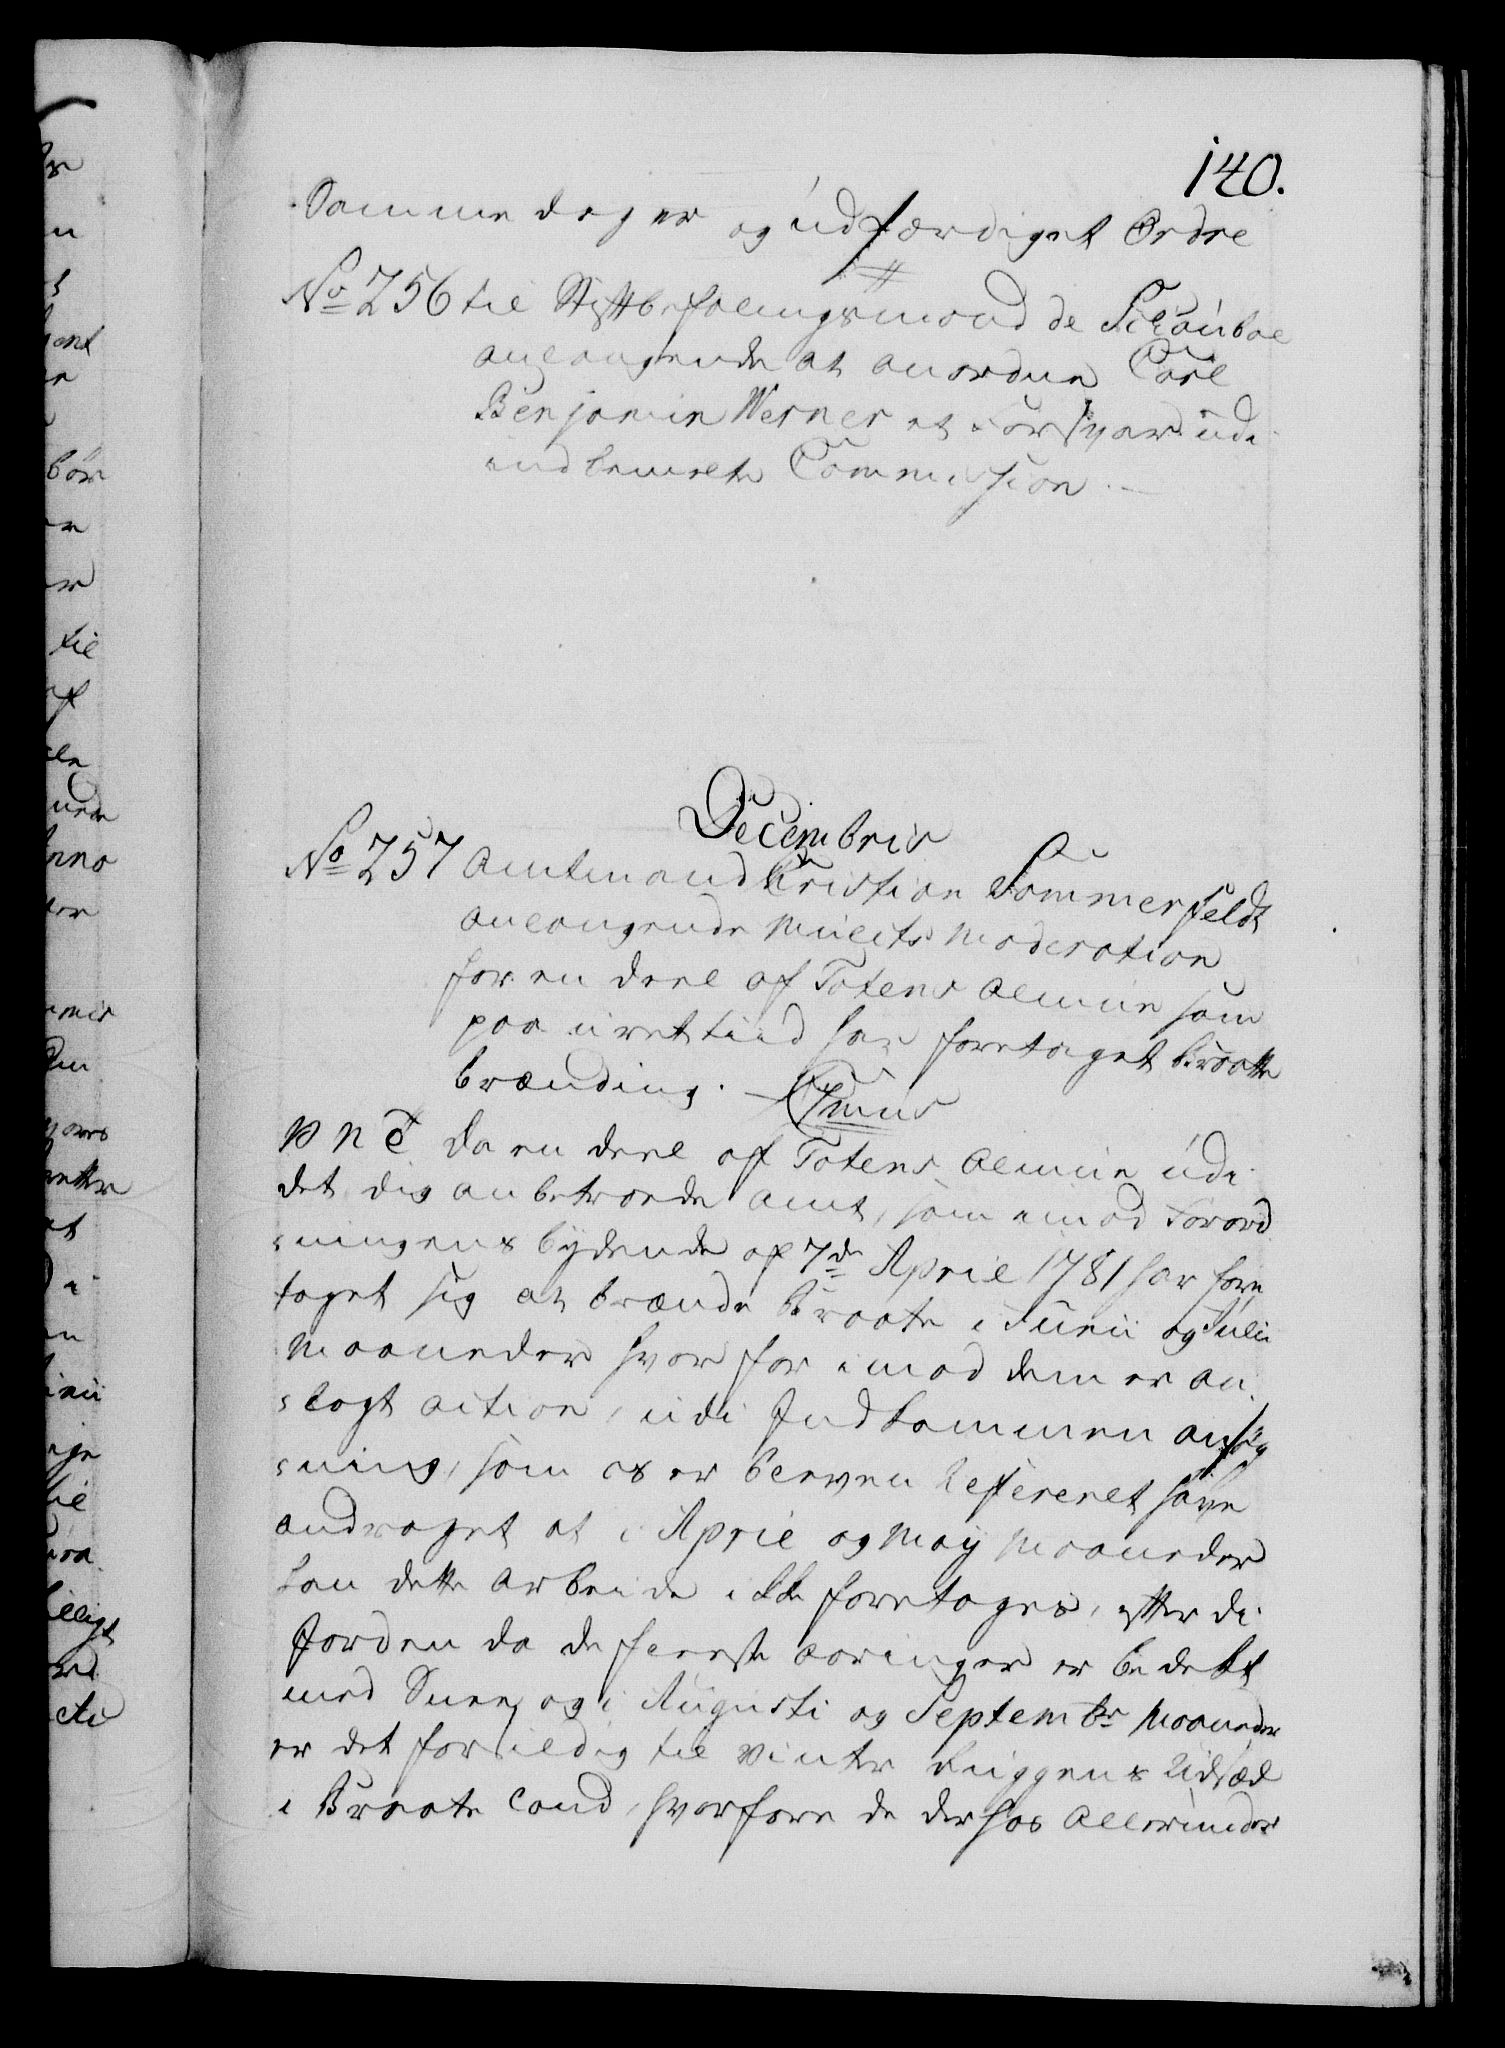 140.
Samme dag er og udfærdiget Ordre
No 256 til Stiftbefalingsmand de Schouboe
anlangende at anordne Carl
Benjamin Werner et Forsvar udi
indbemelte Commission.
Decembris
No 257 Amtmand Christian Sommerfeldt
anlangende Mulcts Moderation
for en deel af Totens Almue som
paa uret tiid har foretaget Braatte
brænding.
Da en deel af Totens Almue udi
det dig anbetroede Amt, som imod Forord
ningens bydende af 7de April 1781 har fore
taget sig at brænde Braate i Junii og Julii
Maaneder hvorfor imod dem er an
lagt action, udi Indkommen ansøg
ning, som os er bleven Refereret have
andraget at i April og May Maaneder
kan dette Arbeide ikke foretages, efterdi
Jorden da de fleeste Aaringer er bedekt
med Snee, og i Augusti og Septembr Maaneder
er det for sildig til Vinter Ruggens Udsæd
i Braate Land, hvorfore de derhos Allerunder